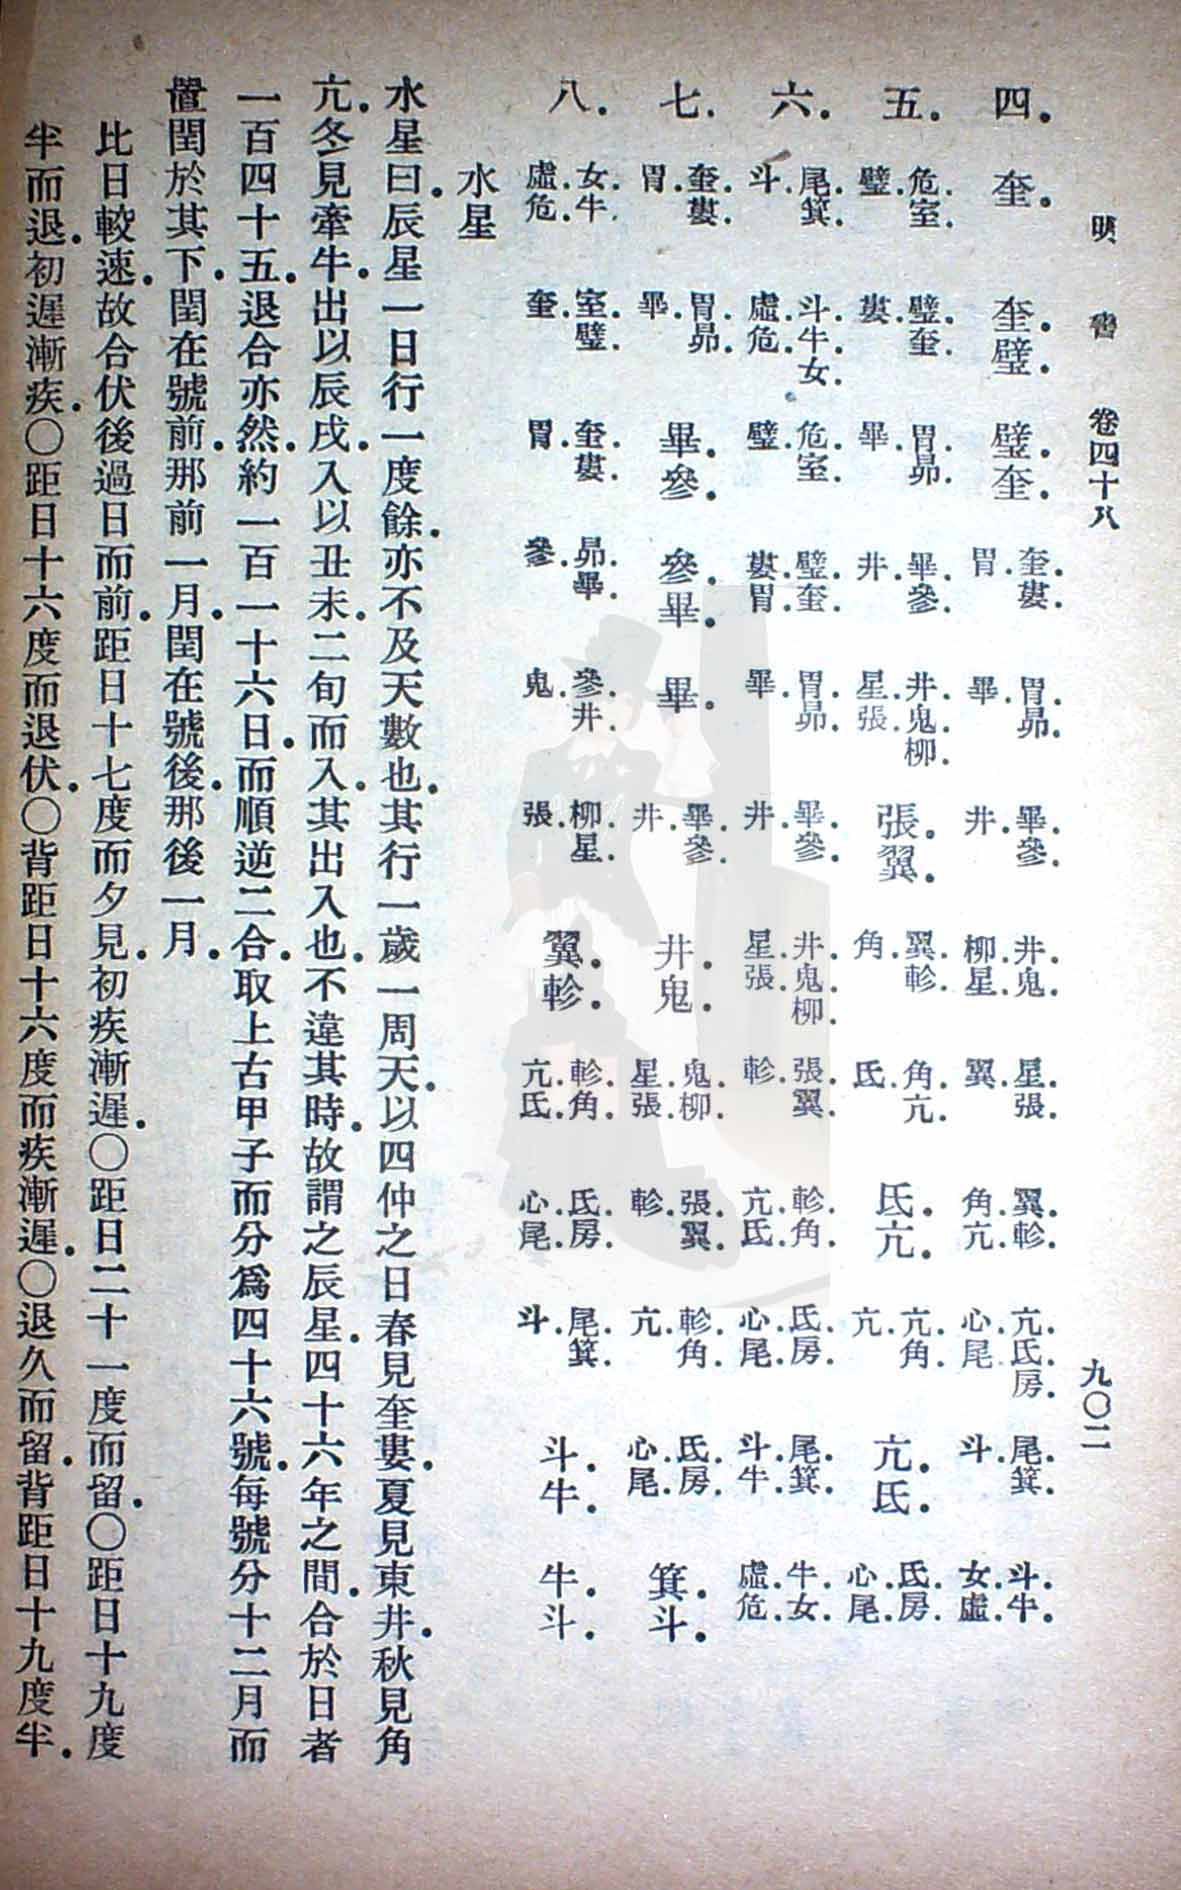 明書 卷四十八 九〇二
四． 奎． 奎．璧． 璧．奎． 奎．婁．胃． 胃．昴．畢． 畢．參．井． 井．鬼．柳．星． 星．張．翼． 翼．軫．角．亢． 亢．氐．房．心．尾． 尾．箕．斗． 斗．牛．女．虛．
五． 危．室．璧． 璧．奎．婁． 胃．昴．畢． 畢．參．井． 井．鬼．柳．星．張． 張．翼． 翼．軫．角． 角．亢．氐． 氐．亢． 亢．角．亢． 亢．氐． 氐．房．心．尾．
六． 尾．箕．斗． 斗．牛．女．虛．危． 危．室．璧． 璧．奎．婁．胃． 胃．昴．畢． 畢．參．井． 井．鬼．柳．星．張． 張．翼．軫． 軫．角．亢．氐． 氐．房．心．尾． 尾．箕．斗．牛． 牛．女．虛．危．
七． 奎．婁．胃． 胃．昴．畢． 畢．參． 參．畢． 畢． 畢．參．井． 井．鬼． 鬼．柳．星．張． 張．翼．軫． 軫．角．亢． 氐．房．心．尾． 箕．斗．
八． 女．牛．虛．危． 室．璧．奎． 奎．婁．胃． 昴．畢．參． 參．井．鬼． 柳．星．張． 翼．軫． 軫．角．亢．氐． 氐．房．心．尾． 尾．箕．斗． 斗．牛． 牛．斗．
水星
水星曰．辰星一日行一度餘．亦不及天數也．其行一歲一周天．以四仲之日春見奎婁．夏見東井．秋見角
亢．冬見牽牛．出以辰戌．入以丑未．二旬而入．其出入也．不違其時．故謂之辰星．四十六年之間．合於日者
一百四十五．退合亦然．約一百一十六日．而順逆二合．取上古甲子而分爲四十六號．每號分十二月而
置閏於其下．閏在號前．那前一月．閏在號後．那後一月．
比日較速．故合伏後過日而前．距日十七度而夕見．初疾漸遲．〇距日二十一度而留．〇距日十九度
半而退．初遲漸疾．〇距日十六度而退伏．〇背距日十六度而疾漸遲．〇退久而留．背距日十九度半．